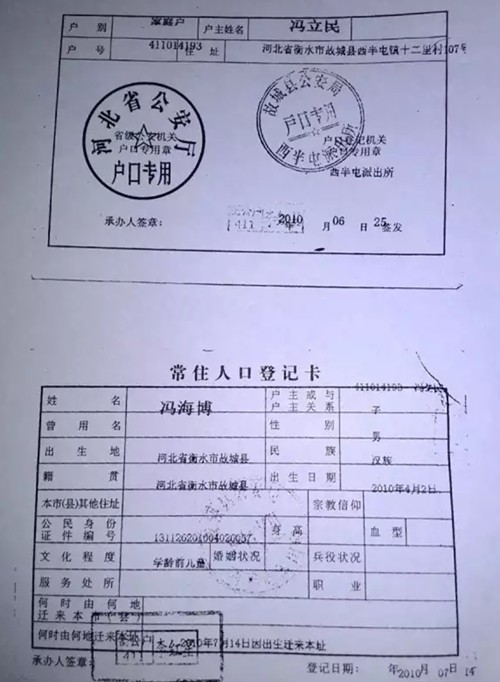 户别 家庭户 户主姓名 冯立民
户号 411014193 住址 河北省衡水市故城县西半屯镇十二里村107号
河北省公安厅
户口专用
省级公安机关
户口专用章
故城县公安局
户口专用
西半屯派出所
户口登记机关
户口专用章
西半屯派出所
承办人签章： 2010 年 06 月 25 日签发
411
常住人口登记卡
411014193 冯立民
姓名 冯海博 户主或与户主关系 子
曾用名 性别 男
出生地 河北省衡水市故城县 民族 汉族
籍贯 河北省衡水市故城县 出生日期 2010年4月2日
本市(县)其他住址 宗教信仰
公民身份证件编号 身高 血型
文化程度 学龄前儿童 婚姻状况 兵役状况
服务处所 职业
何时由何地迁来本市(县)
何时由何地迁来本址 2010年7月14日因出生迁来本址
承办人签章： 登记日期： 2010 年 07 14